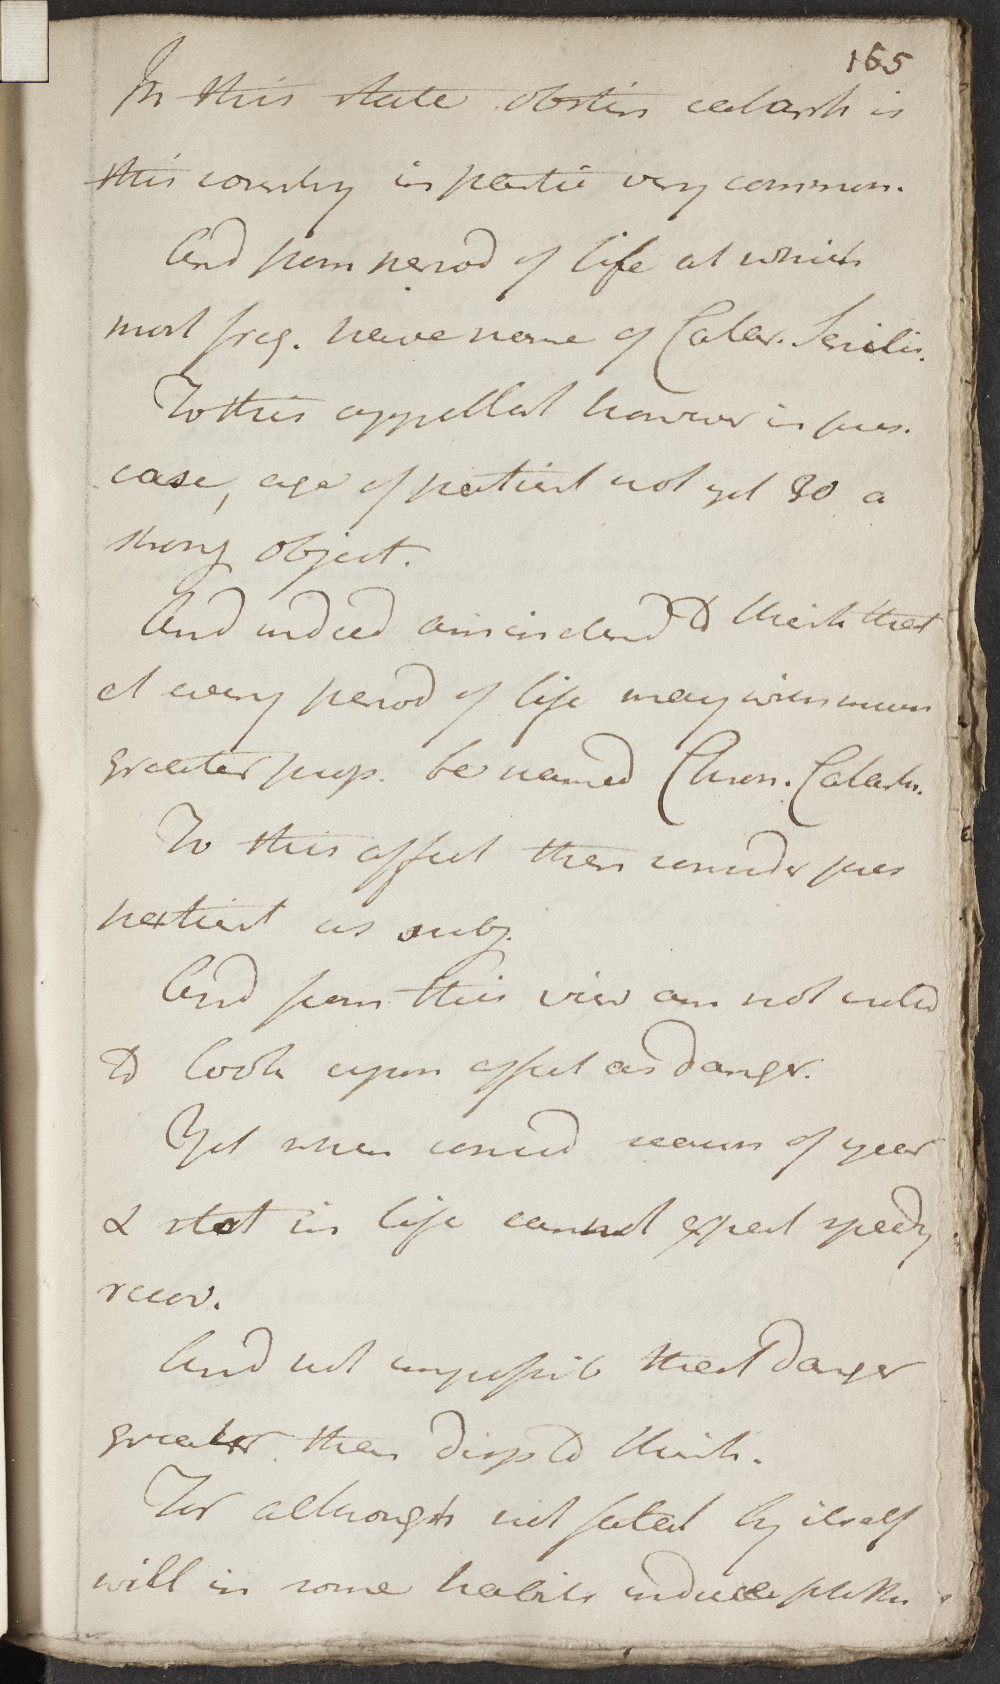 165
In this state obstin catarrh is
this country in partic very common.
And from period of life at which
most freq. have name of Catar. Senilis.
To this appellat however in pres.
case, age of patient not yet 30 a
strong object.
And indeed am inclend to think that
at every period of life may with much
greater prop. be named Chron. Catarh.
To this affect then consider pres
patient as subj.
And from this view am not inclid
to look upon affect as danger.
Yet when consid season of year
& stat in life cannot expect speedy
recov.
And not impossib that danger
greater than disp to think.
For although not fatal by itself
will in some habits induce phthis